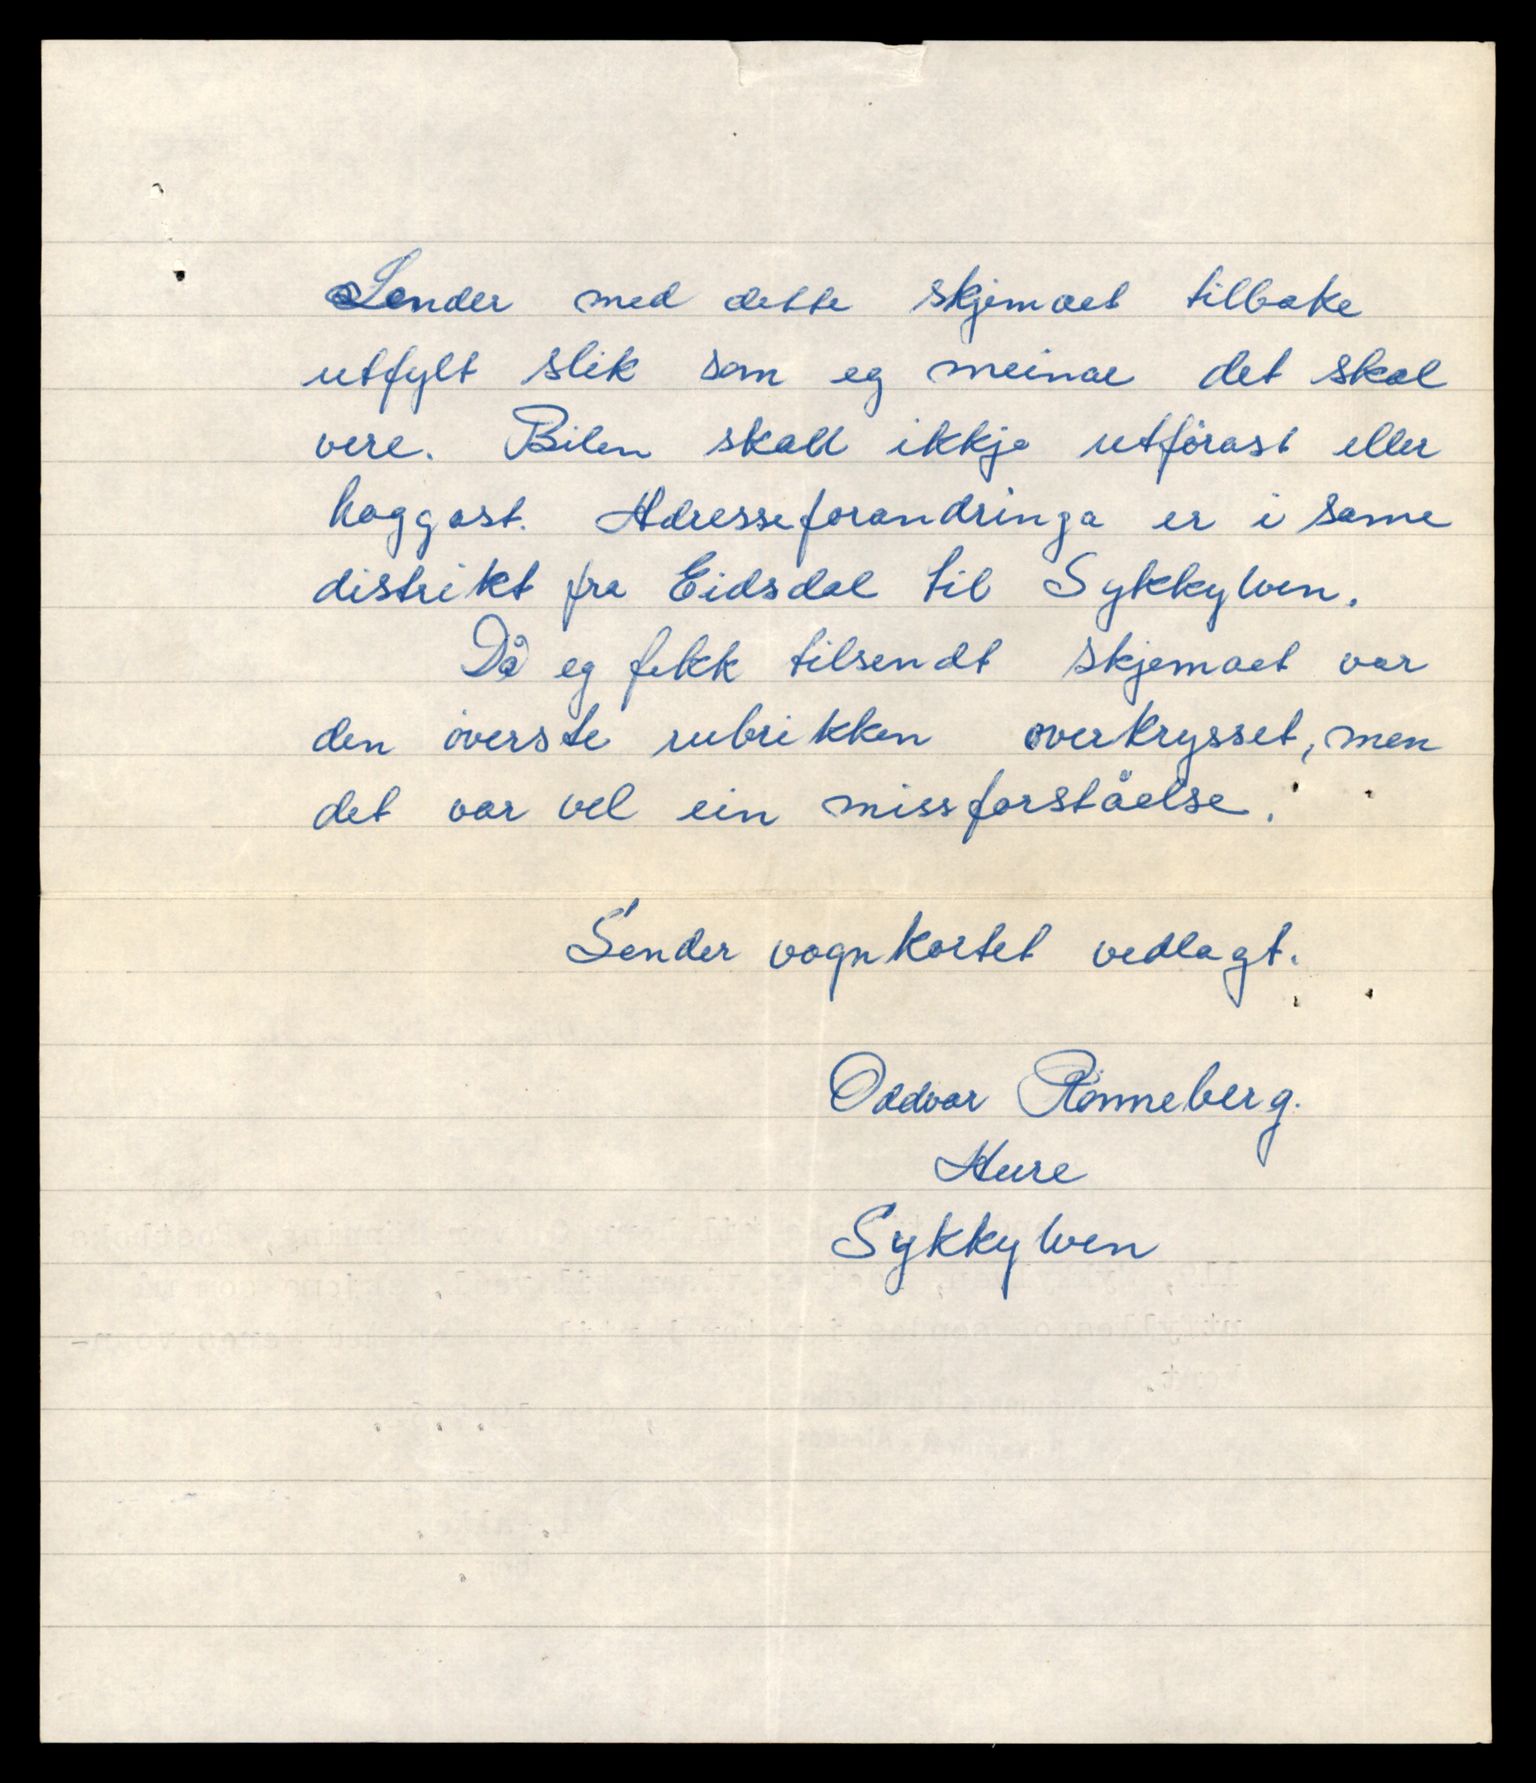 Sender med dette skjemaet tilbake
utfylt slik som eg meinar det skal
vere. Bilen skall ikkje utförast eller
hoggast. Adresseforandringa er i same
distrikt fra Eidsdal til Sykkylven.
Då eg fekk tilsendt skjemaet var
den överste rubrikken overkrysset, men
det var vel ein missforståelse.
Sender vognkortet vedlagt.
Oddvar Rönneberg.
Aure
Sykkylven